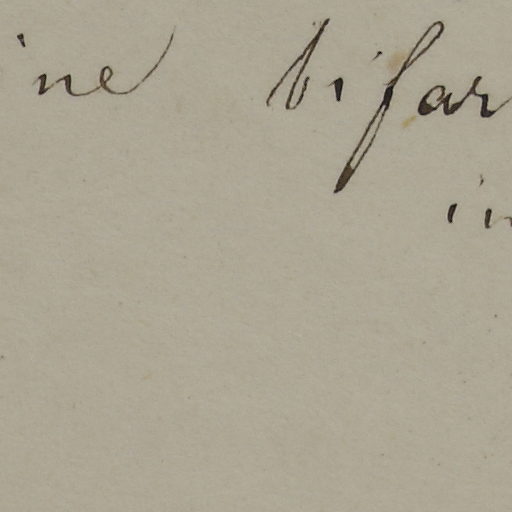 ine bifar
in